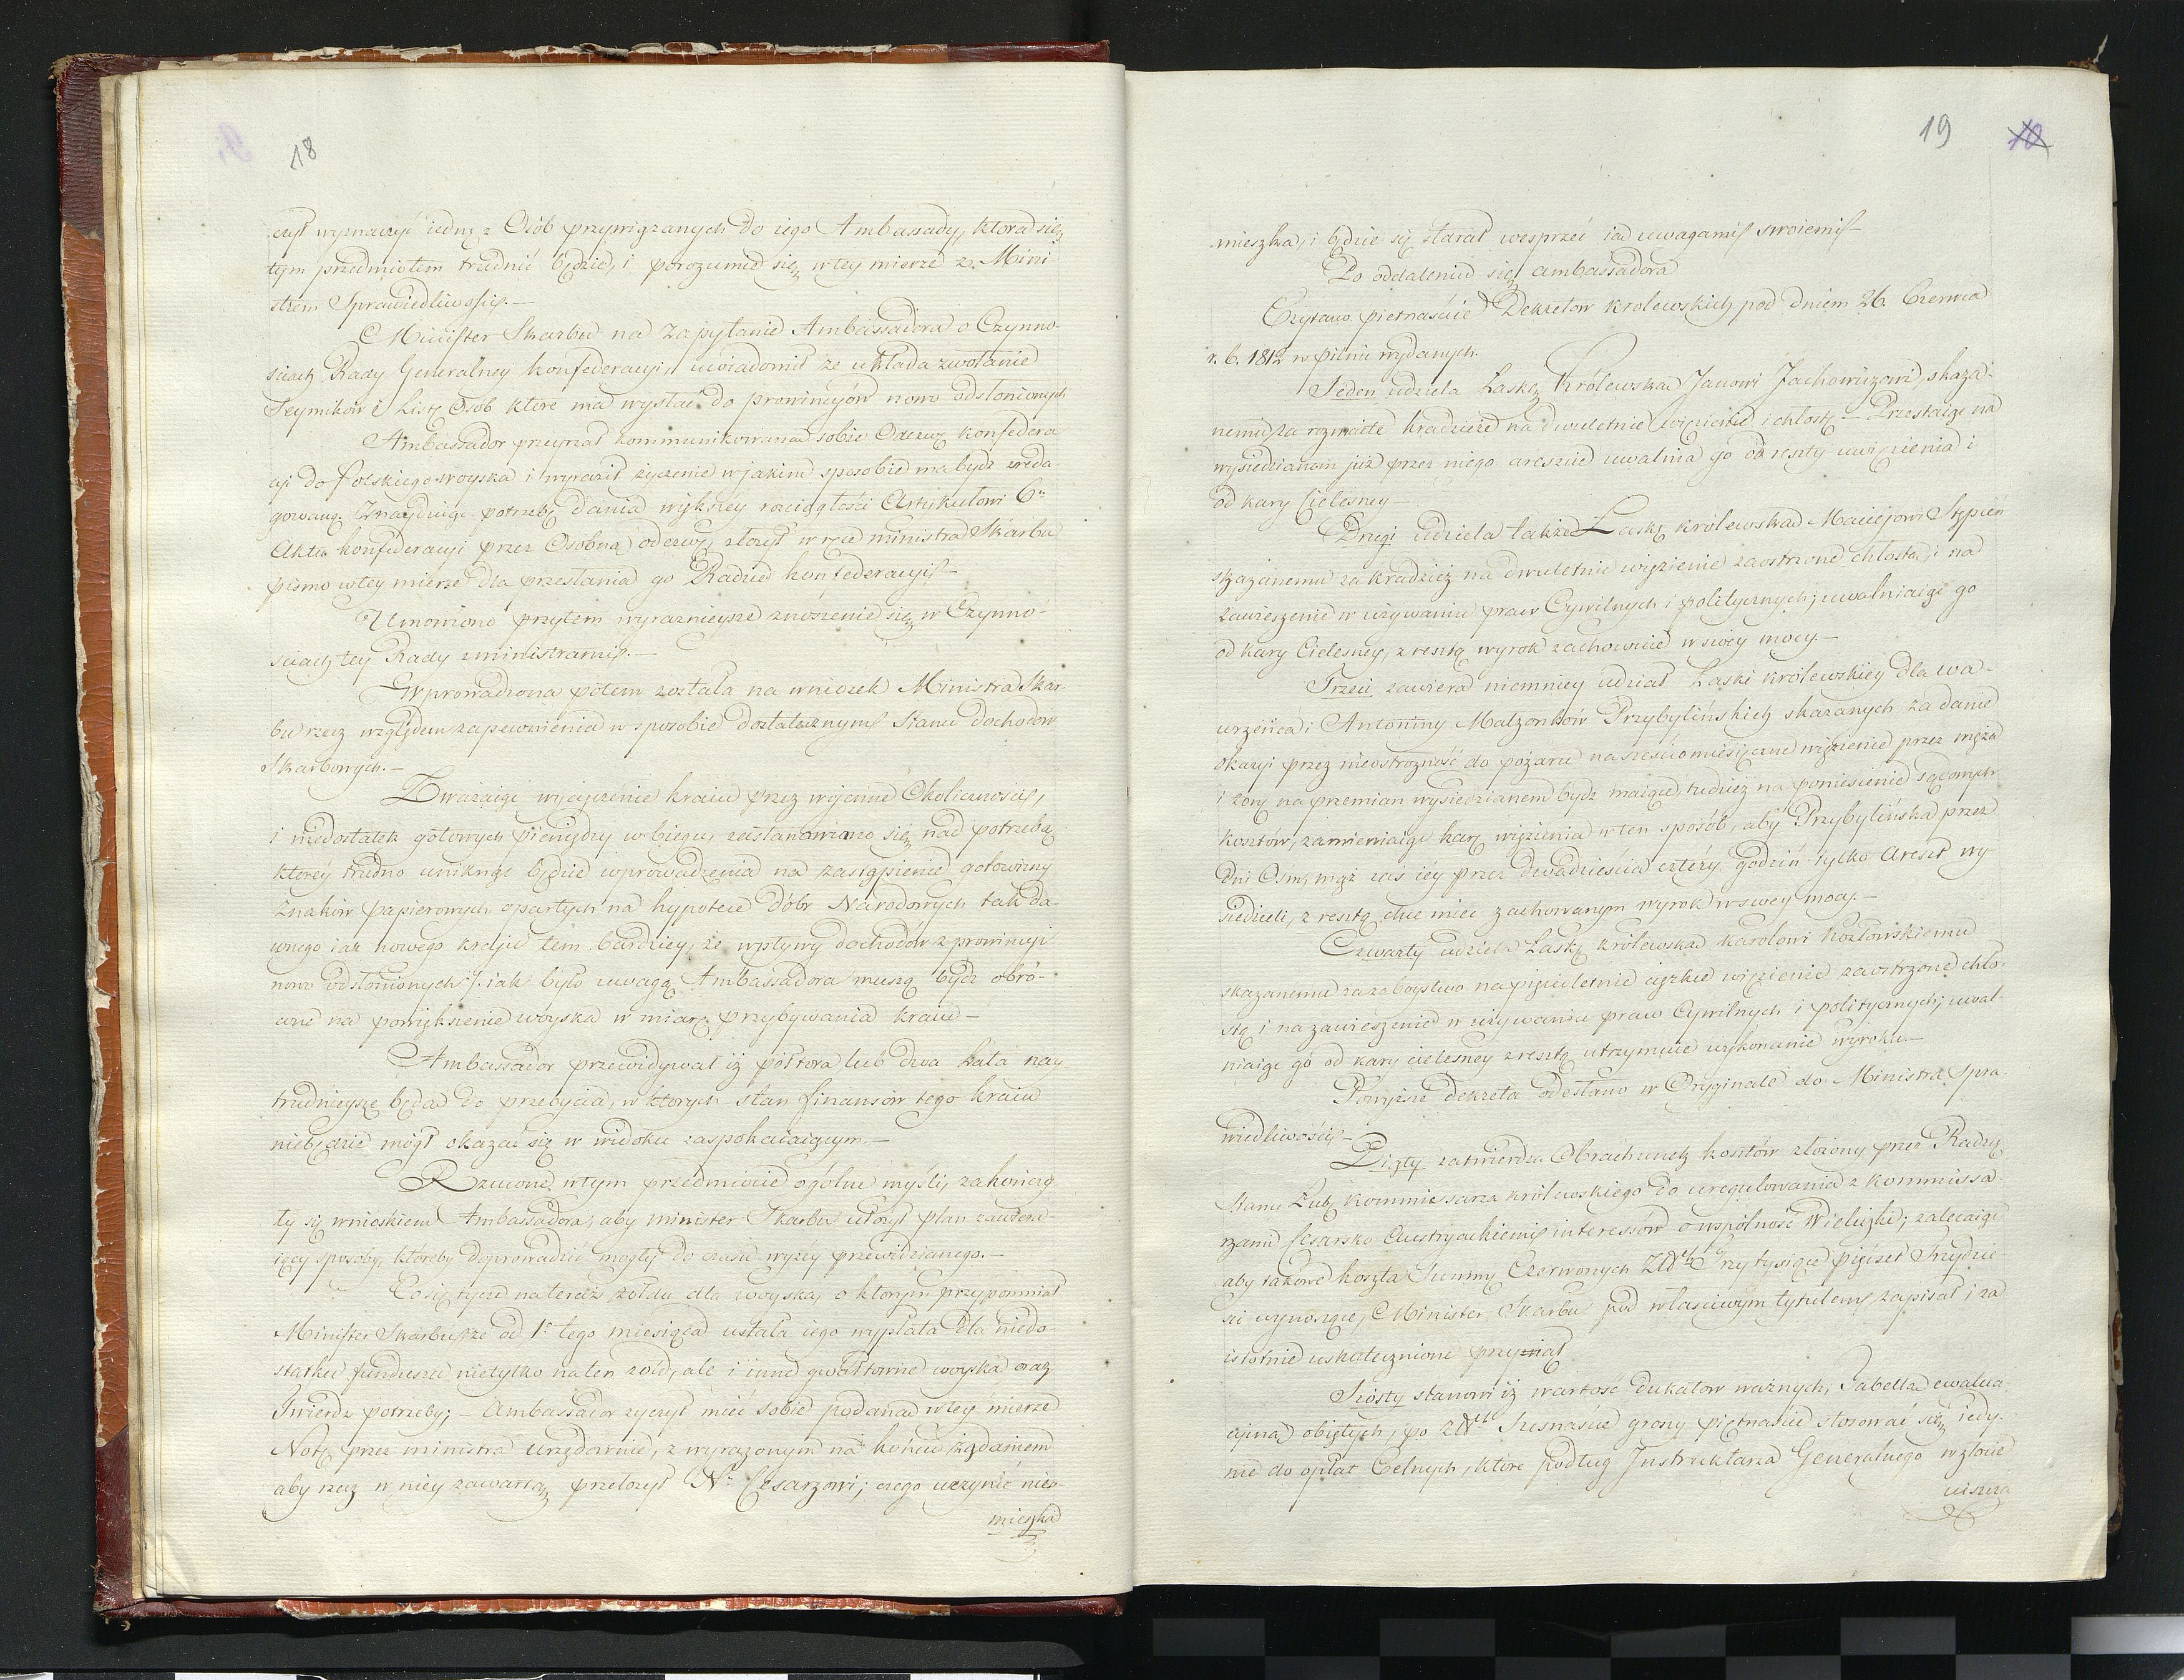 18
czył wyznaczyć iednę z Osób przywiązanych do iego Ambassady, ktora się
tym przedmiotem trudnić będzie, i porozumie się w tey mierze z Mini
strem Sprawiedliwości.—
Minister Skarbu na zapytanie Ambassadora o Czynno-
sciach Rady Generalney konfederacyi, uwiadomił że układa zwołanie
Seymików i Listę Osób które ma wysłać do prowincyów nowo odsłonionych
Ambassador przeyrzał kommunikowana sobie Odezwę konfedera
cyi do Polskiego woyska i wyraził życzenie w jakim sposobie ma bydź zreda
gowaną. Znayduiąc potrzebę dania większey rozciągłości Artykułowi 6mu
Aktu konfederacyi przez Osobną odezwę, złożył w ręce ministra Skarbu
pismo w tey mierze dla przesłania go Radzie konfederacyi—
Umowiono przytem wyraznieysze znoszenie się w Czynno-
sciach tey Rady z ministrami.—
Wprowadzona potem została na wniosek Ministra Skar-
bu rzecz względem zapewnienia w sposobie dostatecznym Stanu dochodów
Skarbowych.—
Zważaiąc wycięczenie kraiu przez woienne Okoliczności,
i niedostatek gotowych pieniędzy w biegu, zastanowiono się nad potrzebą
ktorey trudno uniknąć będzie wprowadzenia na zastąpienie gotowizny
Znaków papierowych opartych na hypotece Dóbr Narodowych tak da-
wnego iak nowego kraju tem bardziey, że wpływy dochodów z prowincyi
nowo odsłonionych /: iak było uwagą Ambassadora muszą bydź obró-
cone na powiększenie woyska w miarę przybywania kraiu—
Ambassador przewidywał iż półtora lub dwa Lata nay
trudnieysze będą do przebycia, w ktorych stan finansów tego kraiu
niebędzie mógł okazać się w widoku zaspokaiaiącym.—
Rzucone w tym przedmiocie ogólne myśli, zakończy-
ły się wnioskiem Ambassadora, aby minister Skarbu ułożył plan zawiera-
iący sposoby, któreby doprowadzić mogły do czasu wyżey przewidzianego.—
Co się tycze na teraz żołdu dla woyska, o którym przypomniał
Minister Skarbu, że od 1o tego miesiąca ustała iego wypłata dla niedo-
statku funduszu nietylko na ten żołd, ale i inne gwałtowne woyska oraz
Twierdz potrzeby;— Ambassador życzył mieć sobie podaną w tey mierze
Notę przez ministra urzędownie, z wyrażonym na końcu żądaniem
aby rzecz w niey zawartą przełożył N. Cesarzowi; czego uczynić nieo-
mieszka
19
10
mieszka, i będzie się starał wesprzeć ią uwagami swoiemi—
Po oddaleniu się ambassadora
Czytano piętnaście Dekretów krolewskich pod dniem 26. Czerwca
r. b. 1812 w Pilnitz wydanych.
Jeden udziela Łaskę Królewską Janowi Jachowiczowi, skaza-
nemu za rozmaite kradzieże na dwuletnie więzienie i chłostę— Przestaiąc na
wysiedzianem już przez niego areszcie uwalnia go od reszty uwięzienia i
od kary Cielesney
Drugi udziela także Łaskę królewską Maciejowi Stępień
skazanemu za kradzież na dwuletnie więzienie zaostrzone chłostą, i na
zawieszenie w używaniu praw Cywilnych i politycznych; uwalniaiąc go
od kary Cielesney, z resztą wyrok zachowuie w swey mocy.—
Trzeci zawiera niemniey udział Łaski królewskiey dla Wa-
wrzeńca i Antoniny Małzonków Przybylińskich skazanych za danie
okazyi przez nieostrożność do pożaru na sześciomiesięczne więzienie przez męża
i żonę na przemian wysiedzianem bydź maiące, tudzież na poniesienie sądowych
kosztów, zamieniaiąc karę więzienia w ten sposób, aby Przybylińska przez
Dni Osm, mąż zaś iey przez dwadzieścia cztéry godzin tylko Areszt wy-
siedzieli, z resztą chce mieć zachowanym wyrok w swey mocy.—
Czwarty udziela Łaskę królewską Karolowi Kozłowskiemu
skazanemu za zaboystwo na pięcioletnie ciężkie więzienie zaostrzone chło-
stą i na zawieszenie w używaniu praw Cywilnych i politycznych; uwal-
niaiąc go od kary cielesney z resztą utrzymuie wykonanie wyroku.—
Powyższe dekreta odesłano w Oryginale do Ministra Spra-
wiedliwości—
Piąty zatwierdza Obrachunek kosztów złożony przez Radzcę
Stanu Łub. kommissarza królewskiego do uregulowania z kommissa-
rzami Cesarsko Austryackiemi interessów o wspólność Wieliczki; zalecaiąc
aby takowe koszta Summę Czerwonych Złłtch Trzy tysiące pięćset Trzydzie-
ści wynoszące, Minister Skarbu pod właściwym tytułem zapisał i za
istotnie uskutecznione przyiął
Szósty stanowi iż wartość dukatow ważnych, Tabella ewalua-
cyiną obiętych, po Złłtch Szesnaście groszy piętnaście stosować się iedy-
nie do opłat Celnych, które podług Instruktarza Generalnego w złocie
uiszcza